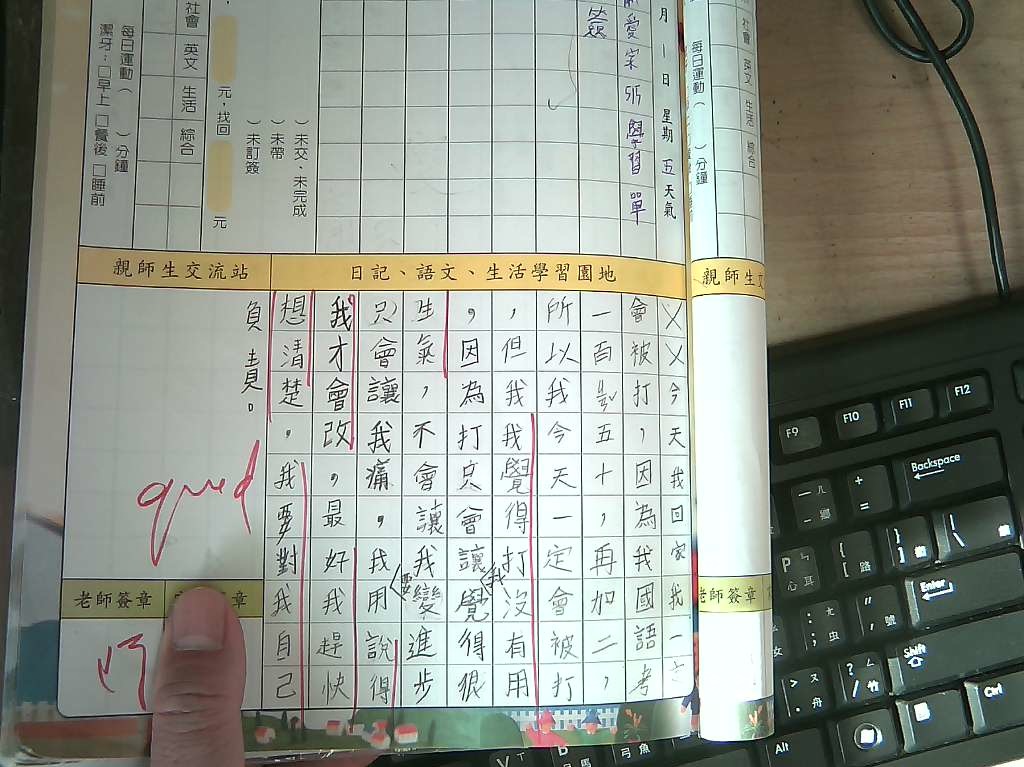 月一日星期五天氣
學習單
社會 英文 生活 綜合
每日運動（ ）分鐘
潔牙：□早上□餐後□睡前
元，找回 元
）未交、未完成
）未帶
）未訂簽
每日運動（ ）分鐘
社會 英文 生活 綜合
日記、語文、生活學習園地
親師生交流站
ㄨㄨ今天我回家我一定
會被打，因為我國語考
一百 五十，再加二，
所以我今天一定會被打
，但我我覺得打沒有用
，因為打只會讓我覺得很
生氣，不會讓我要變進步
只會讓我痛，我用說得
我才會改，最好我趕快
想清楚，我要對我自己
負責。
老師簽章
章
親師生交
老師簽章
F9 F10 F11 F12
Backspace
Enter
Shift
Ctrl
Alt